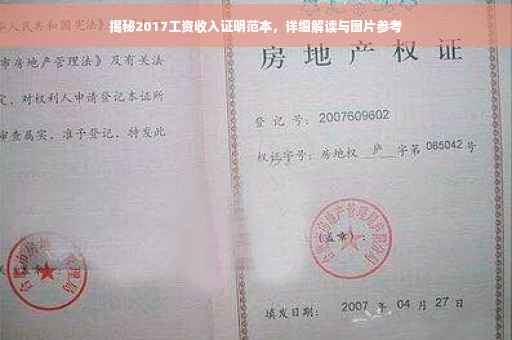 揭秘2017工资收入证明范本，详细解读与图片参考
人民共和国宪法》
市房地产管理法》及有关法
定，对权利人申请登记本证所
审查属实，准予登记，特发此
房地产权证
登记号：2007609602
权证字号：房地权 庐 字第 065042 号
(盖章)：
填发日期： 2007 年 04 月 27 日